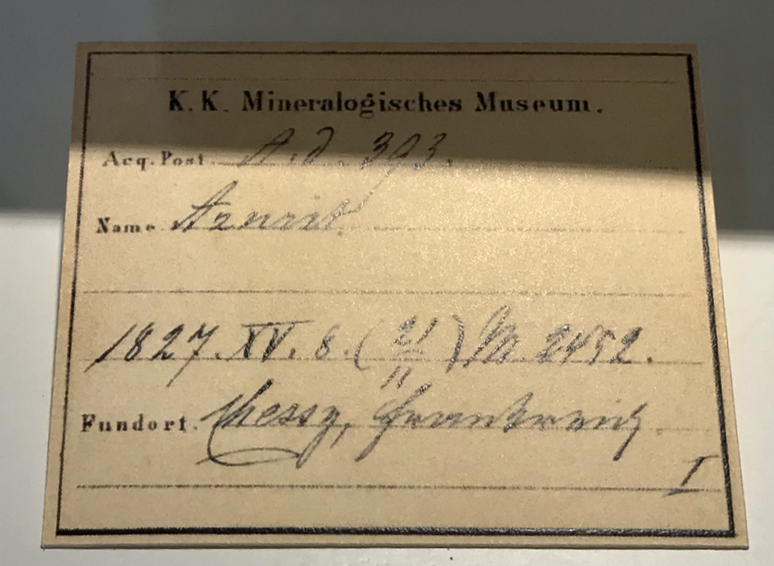 K. K. Mineralogisches Museum.
Acq. Post. A. d. 393.
Name Azurit
1827. XV. 8. (21/11) 2452.
Fundort. Chessy, Frankreich
I